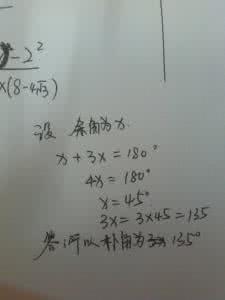 -2²
x(8-4√3)
设 余角为x.
x+3x=180°
4x=180°
x=45°
3x=3×45=135
答所以补角为 135°